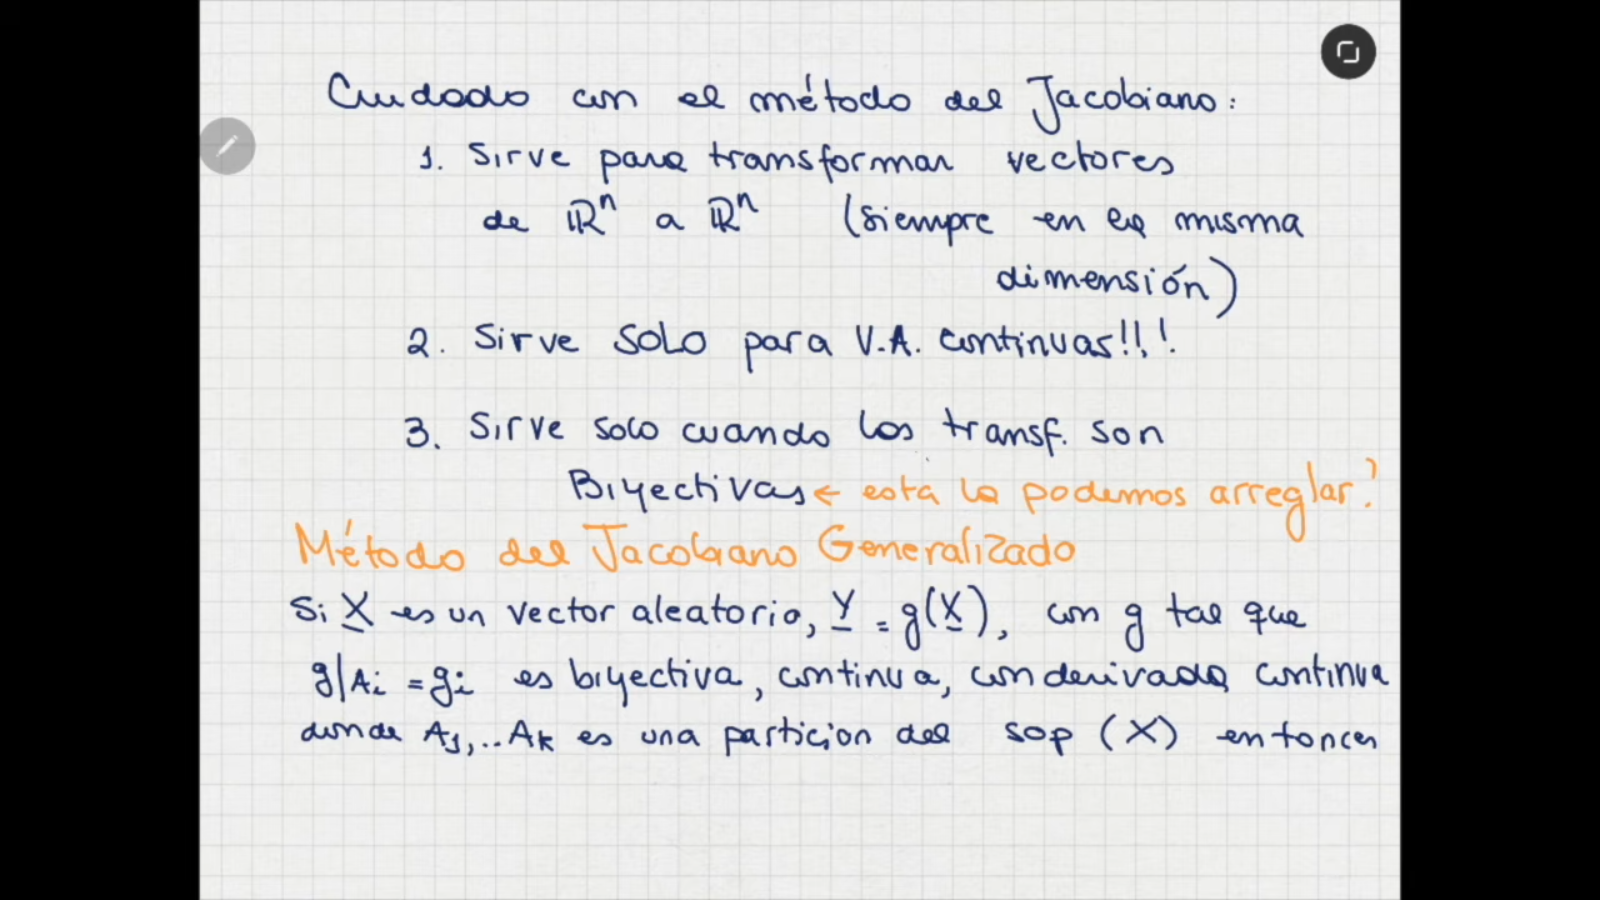 Cuidado con el método del Jacobiano:
1. Sirve para transformar vectores
de ℝⁿ a ℝⁿ (siempre en la misma
dimensión)
2. Sirve SOLO para V.A. continuas!!!
3. Sirve solo cuando las transf. son
Biyectivas ← esta la podemos arreglar?
Método del Jacobiano Generalizado
Si X es un vector aleatorio, Y = g(X), con g tal que
g|Ai = gi es biyectiva, continua, con derivada continua
donde A1,..Ak es una particion del sop (X) entonces